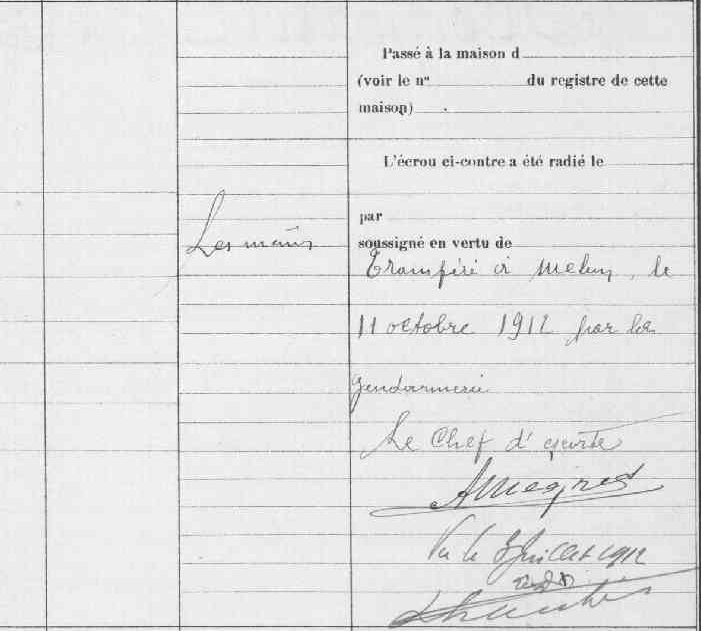 Passé à la maison d
(voir le n° du registre de cette
maison)
L'écrou ci-contre a été radié le
par
Les mains
soussigné en vertu de
Transféré à Melun, le
11 octobre 1912 par la
gendarmerie
Le Chef d'escorte
Vu le 3 Juillet 1912